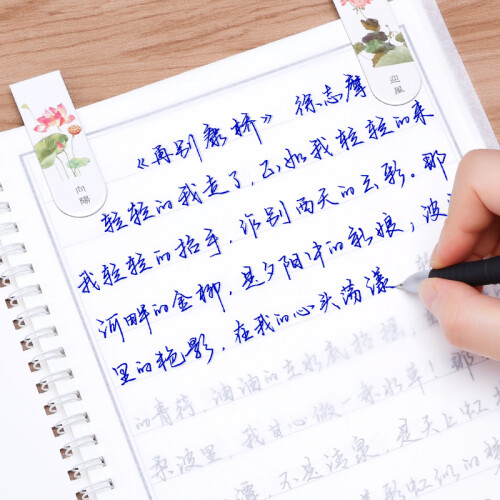 迎風
向陽
《再别康桥》 徐志摩
轻轻的我走了,正如我轻轻的来
我轻轻的招手,作别西天的云彩。那
河畔的金柳,是夕阳中的新娘;波
里的艳影,在我的心头荡漾
的青荇,油油的在水底招摇;
柔波里,我甘心做一条水草!那
潭,不是清泉,是天上虹
虹似的梦